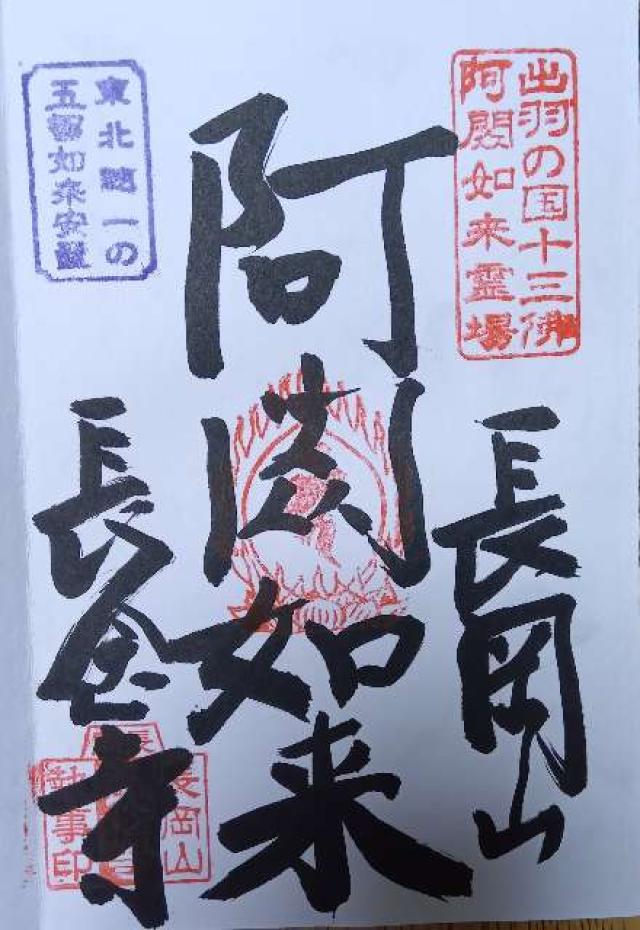 出羽の国十三佛
阿閦如来霊場
長岡山
阿閦如来
東北随一の
五智如来安置
長念寺
長岡山
執事印